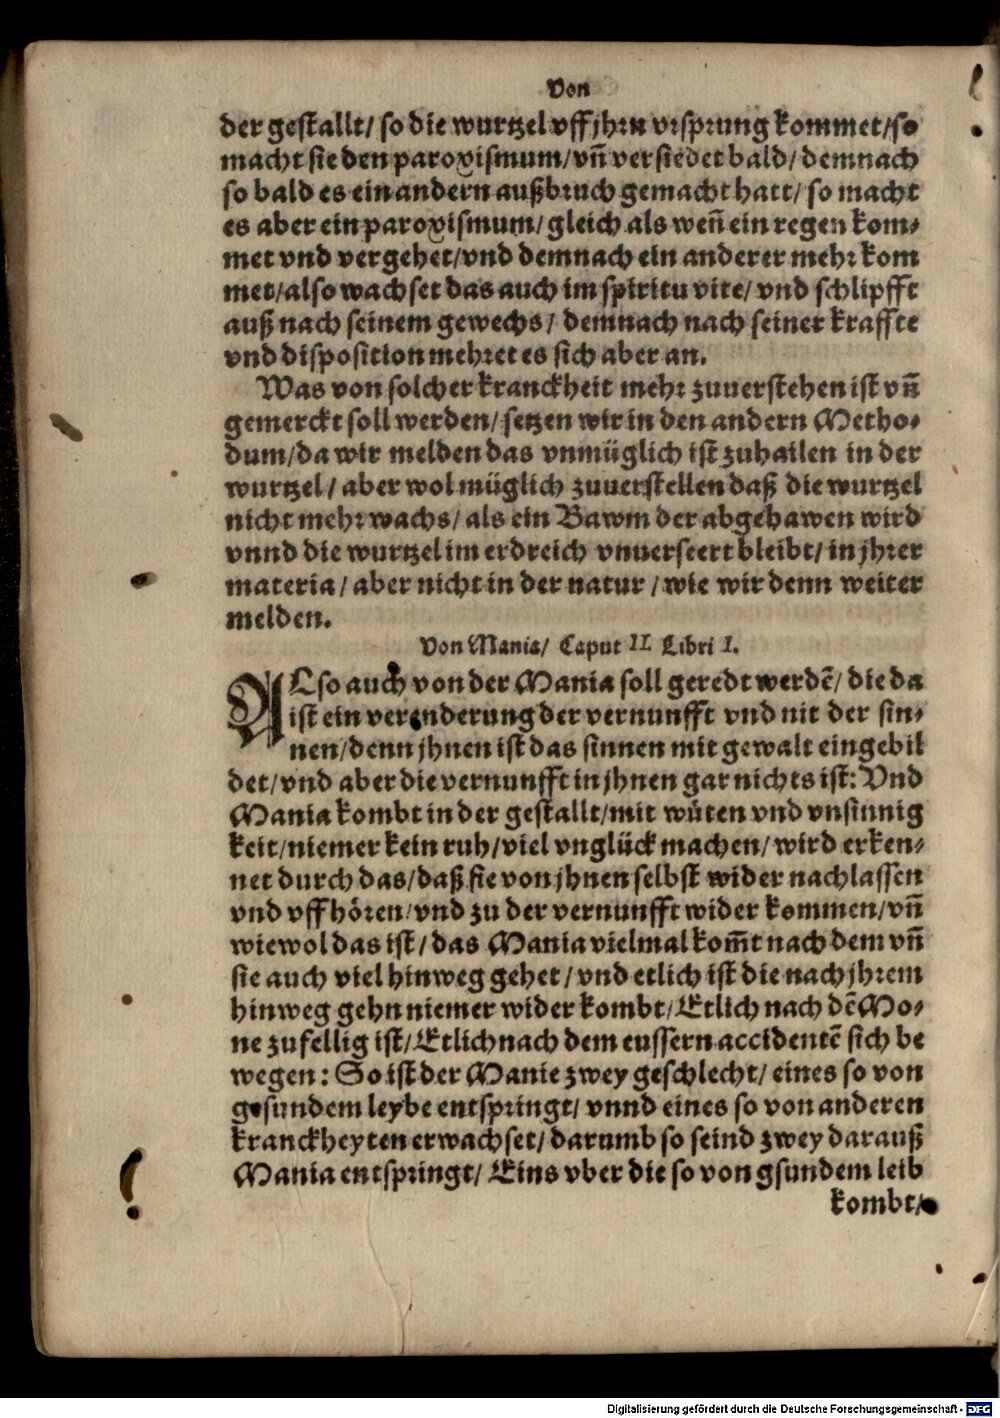 Von
der gestallt/ so die wurtzel vff jhrn vrsprung kommet/so
macht sie den paroxismum/vñ versiedet bald/ demnach
so bald es ein andern außbruch gemacht hatt/ so macht
es aber ein paroxismum/ gleich als weñ ein regen kom⸗
met vnd vergehet/vnd demnach ein anderer mehr kom
met/also wachset das auch im spiritu vite/ vnd schlipfft
auß nach seinem gewechs/ demnach nach seiner kraffte
vnd disposition mehret es sich aber an.
Was von solcher kranckheit mehr zuuerstehen ist vñ
gemerckt soll werden/ setzen wir in den andern Metho⸗
dum/da wir melden das vnmüglich ist zuhailen in der
wurtzel/ aber wol müglich zuuerstellen daß die wurtzel
nicht mehr wachs/ als ein Bawm der abgehawen wird
vnnd die wurtzel im erdreich vnuerseert bleibt/ in jhrer
materia/ aber nicht in der natur/ wie wir denn weiter
melden.
Von Mania/ Caput II Libri I.
ALso auch von der Mania soll geredt werdē/ die da
ist ein verenderung der vernunfft vnd nit der sin⸗
nen/denn jhnen ist das sinnen mit gewalt eingebil
det/vnd aber die vernunfft in jhnen gar nichts ist: Vnd
Mania kombt in der gestallt/mit wüten vnd vnsinnig
keit/niemer kein ruh/viel vnglück machen/ wird erken⸗
net durch das/daß sie von jhnen selbst wider nachlassen
vnd vff hören/vnd zu der vernunfft wider kommen/vñ
wiewol das ist/ das Mania vielmal kom̄t nach dem vñ
sie auch viel hinweg gehet/ vnd etlich ist die nach jhrem
hinweg gehn niemer wider kombt/ Etlich nach dē Mo⸗
ne zufellig ist/ Etlich nach dem eussern accidentē sich be
wegen: So ist der Manie zwey geschlecht/ eines so von
gesundem leybe entspringt/ vnnd eines so von anderen
kranckheyten erwachset/ darumb so seind zwey darauß
Mania entspringt/ Eins vber die so von gsundem leib
kombt/
Digitalisierung gefördert durch die Deutsche Forschungsgemeinschaft - DFG